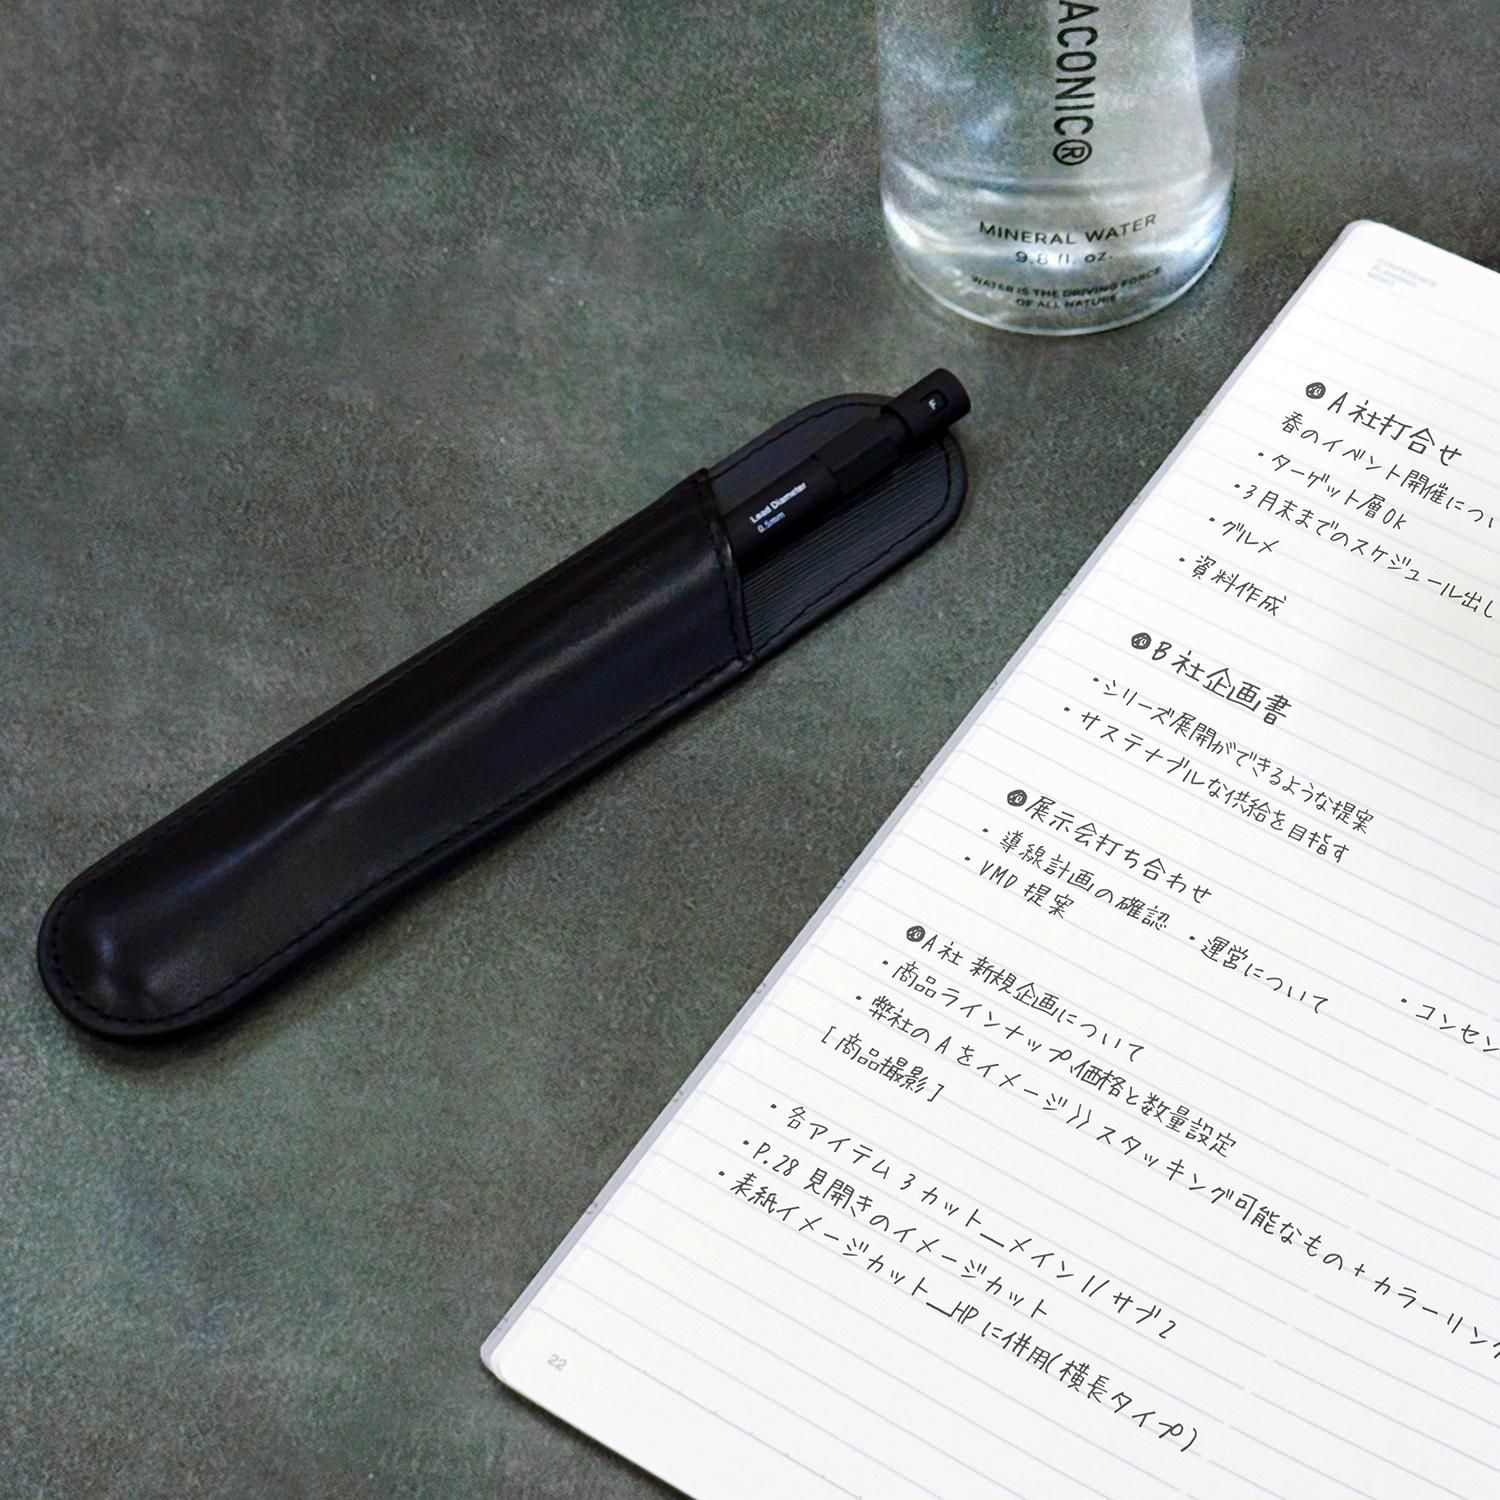 ACONIC®
MINERAL WATER
9.8 fl. oz.
WATER IS THE DRIVING FORCE
OF ALL NATURE
F
Lead Diameter
0.5mm
CONFERENCE
PLANNING
MEMO
A社打合せ
春のイベント開催につい
・ターゲット層OK
・3月末までのスケジュール出し
・グルメ
・資料作成
B社企画書
・シリーズ展開ができるような提案
・サステナブルな供給を目指す
展示会打ち合わせ
・導線計画の確認 ・運営について ・コンセン
・VMD 提案
A社 新規企画について
・商品ラインナップ、価格と数量設定
・弊社のAをイメージ》スタッキング可能なもの+カラーリング
[商品撮影]
・各アイテム3カット__メイン1/サブ2
・P.28 見開きのイメージカット
・表紙イメージカット__HPに併用(横長タイプ)
22